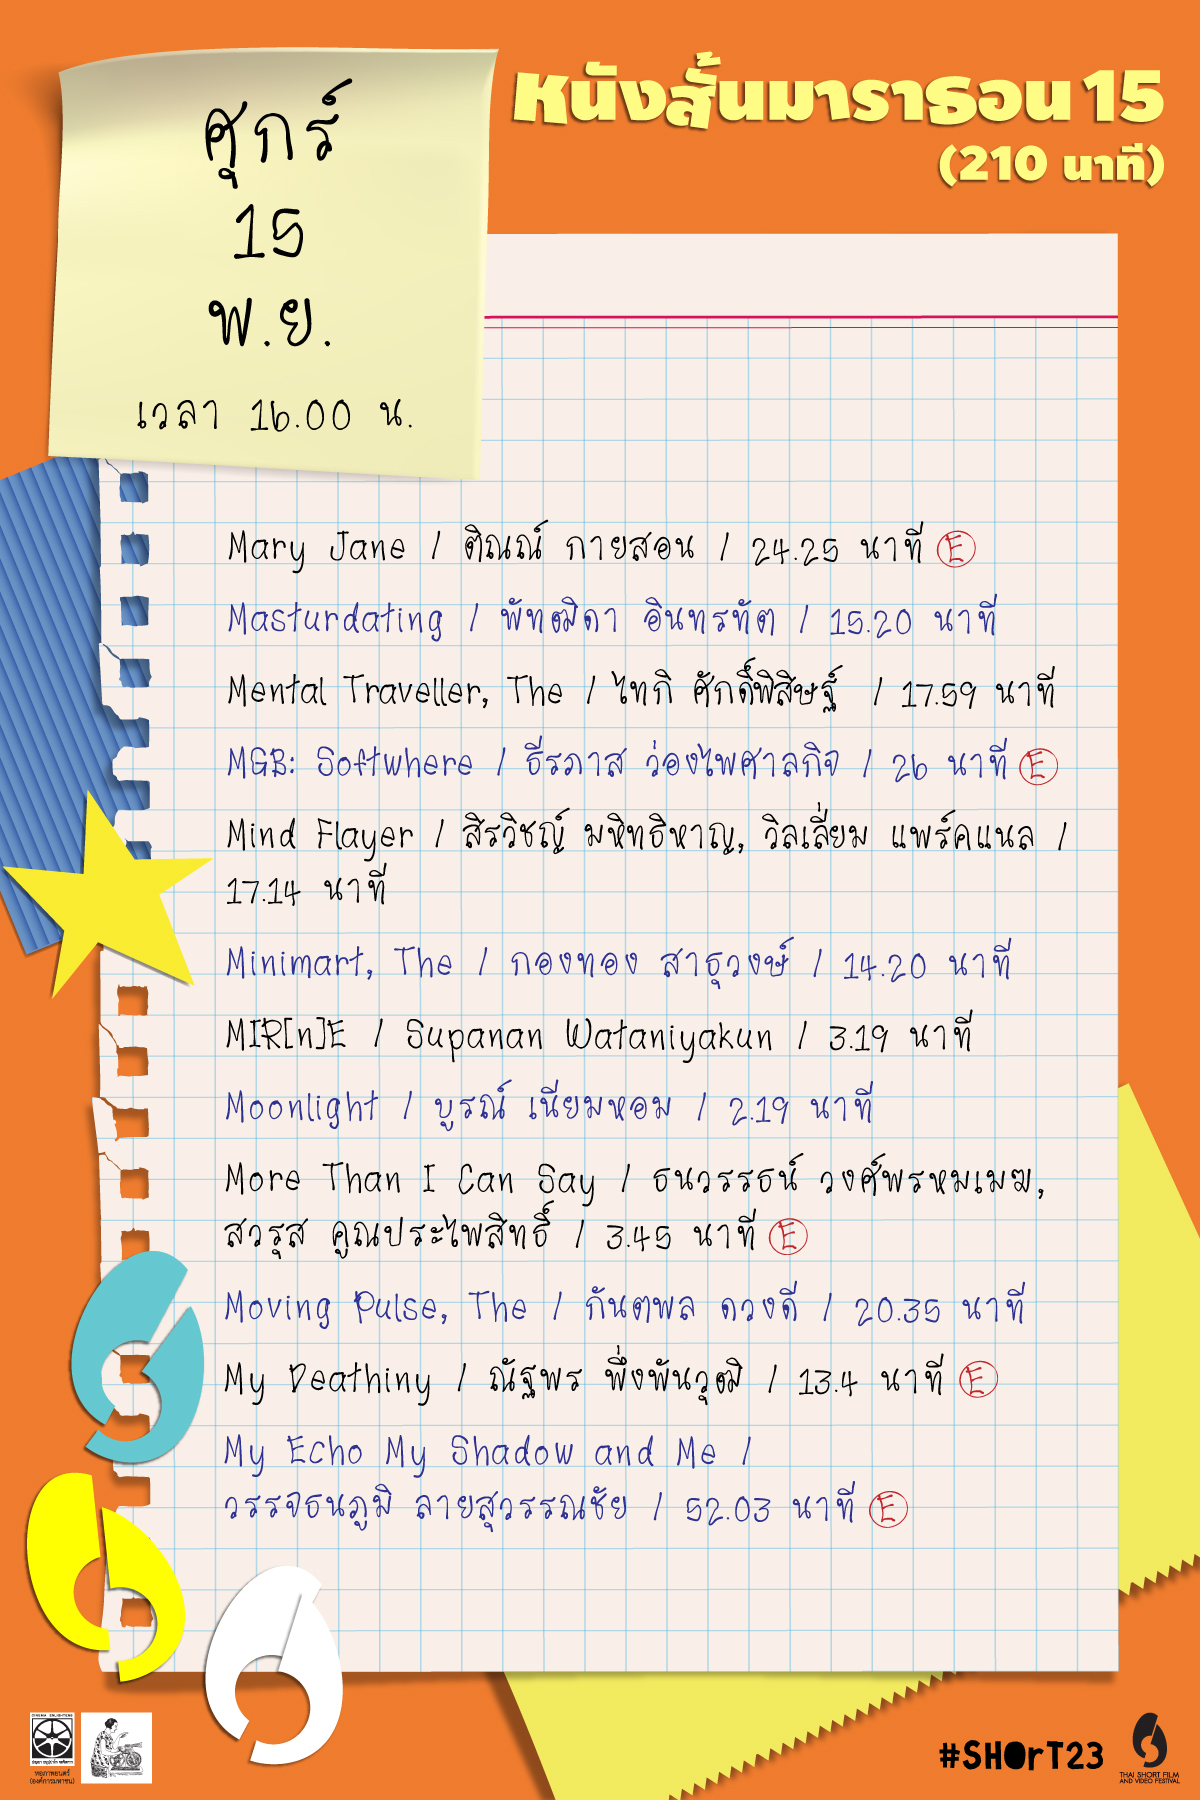 ศุกร์
15
พ.ย.
เวลา 16.00 น.
หนังสั้นมาราธอน 15
(210 นาที)
Mary Jane / ติณณ์ กายสอน / 24.25 นาที E
Masturdating / พัทฒิดา อินทรทัต / 15.20 นาที
Mental Traveller, The / ไทกิ ศักดิ์พิสิษฐ์ / 17.59 นาที
MGB: Softwhere / ธีรภาส ว่องไพศาลกิจ / 26 นาที E
Mind Flayer / สิรวิชญ์ มหิทธิหาญ, วิลเลี่ยม แพร์คแนล /
17.14 นาที
Minimart, The / กองทอง สาธุวงษ์ / 14.20 นาที
MIR[n]E / Supanan Wataniyakun / 3.19 นาที
Moonlight / บูรณ์ เนียมหอม / 2.19 นาที
More Than I Can Say / ธนวรรธน์ วงศ์พรหมเมฆ,
สวรุส คูณประไพสิทธิ์ / 3.45 นาที E
Moving Pulse, The / กันตพล ดวงดี / 20.35 นาที
My Deathiny / ณัฐพร พึ่งพันวุฒิ / 13.4 นาที E
My Echo My Shadow and Me /
วรรจธนภูมิ ลายสุวรรณชัย / 52.03 นาที E
CINEMA ENLIGHTENS
หอภาพยนตร์
(องค์การมหาชน)
#SHOrT23
THAI SHORT FILM
AND VIDEO FESTIVAL